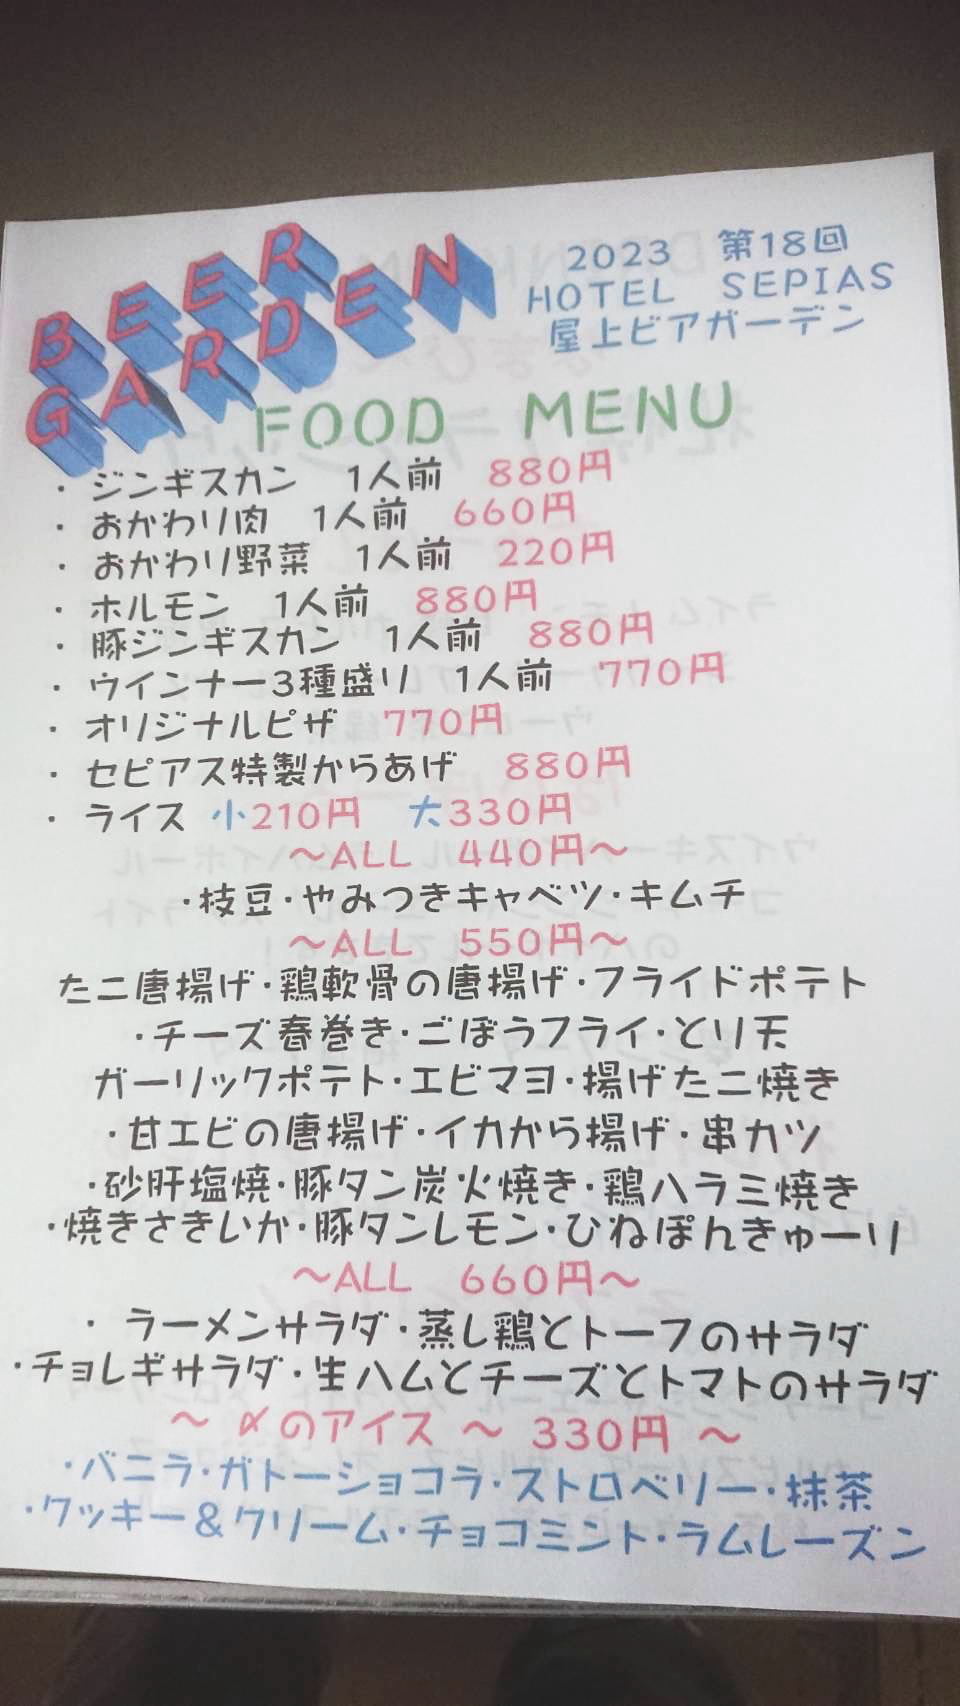 BEER
GARDEN
2023　第18回
HOTEL　SEPIAS
屋上ビアガーデン
FOOD　MENU
・ジンギスカン　1人前　880円
・おかわり肉　1人前　660円
・おかわり野菜　1人前　220円
・ホルモン　1人前　880円
・豚ジンギスカン　1人前　880円
・ウインナー3種盛り　1人前　770円
・オリジナルピザ　770円
・セピアス特製からあげ　880円
・ライス 小210円　大330円
～ALL　440円～
・枝豆・やみつきキャベツ・キムチ
～ALL　550円～
たこ唐揚げ・鶏軟骨の唐揚げ・フライドポテト
・チーズ春巻き・ごぼうフライ・とり天
ガーリックポテト・エビマヨ・揚げたこ焼き
・甘エビの唐揚げ・イカから揚げ・串カツ
・砂肝塩焼・豚タン炭火焼き・鶏ハラミ焼き
・焼きさきいか・豚タンレモン・ひねぽんきゅーり
～ALL　660円～
・ラーメンサラダ・蒸し鶏とトーフのサラダ
・チョレギサラダ・生ハムとチーズとトマトのサラダ
～ 〆のアイス ～ 330円 ～
・バニラ・ガトーショコラ・ストロベリー・抹茶
・クッキー＆クリーム・チョコミント・ラムレーズン